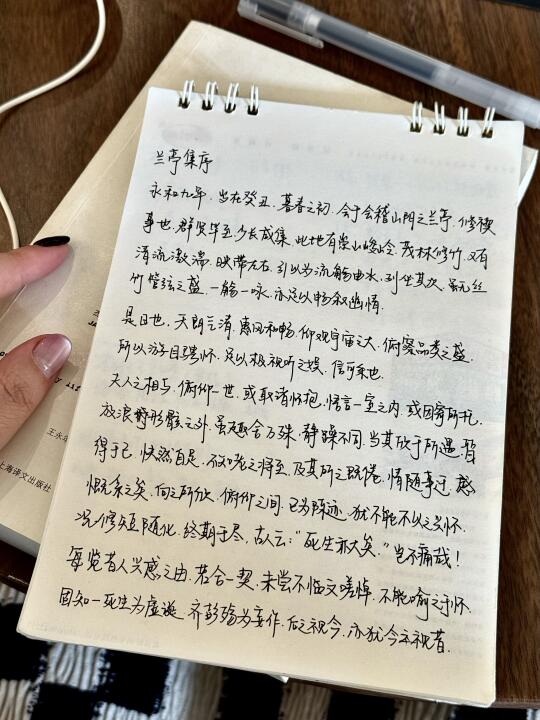 兰亭集序
永和九年，岁在癸丑，暮春之初，会于会稽山阴之兰亭，修禊
事也。群贤毕至，少长咸集。此地有崇山峻岭，茂林修竹，又有
清流激湍，映带左右，引以为流觞曲水，列坐其次。虽无丝
竹管弦之盛，一觞一咏，亦足以畅叙幽情。
是日也，天朗气清，惠风和畅。仰观宇宙之大，俯察品类之盛，
所以游目骋怀，足以极视听之娱，信可乐也。
夫人之相与，俯仰一世，或取诸怀抱，悟言一室之内，或因寄所托，
放浪形骸之外。虽趣舍万殊，静躁不同，当其欣于所遇，暂
得于己，快然自足，不知老之将至，及其所之既倦，情随事迁，感
慨系之矣。向之所欣，俯仰之间，已为陈迹，犹不能不以之兴怀，
况修短随化，终期于尽，古人云：“死生亦大矣。”岂不痛哉！
每览昔人兴感之由，若合一契，未尝不临文嗟悼，不能喻之于怀。
固知一死生为虚诞，齐彭殇为妄作，后之视今，亦犹今之视昔，
王永年
上海译文出版社